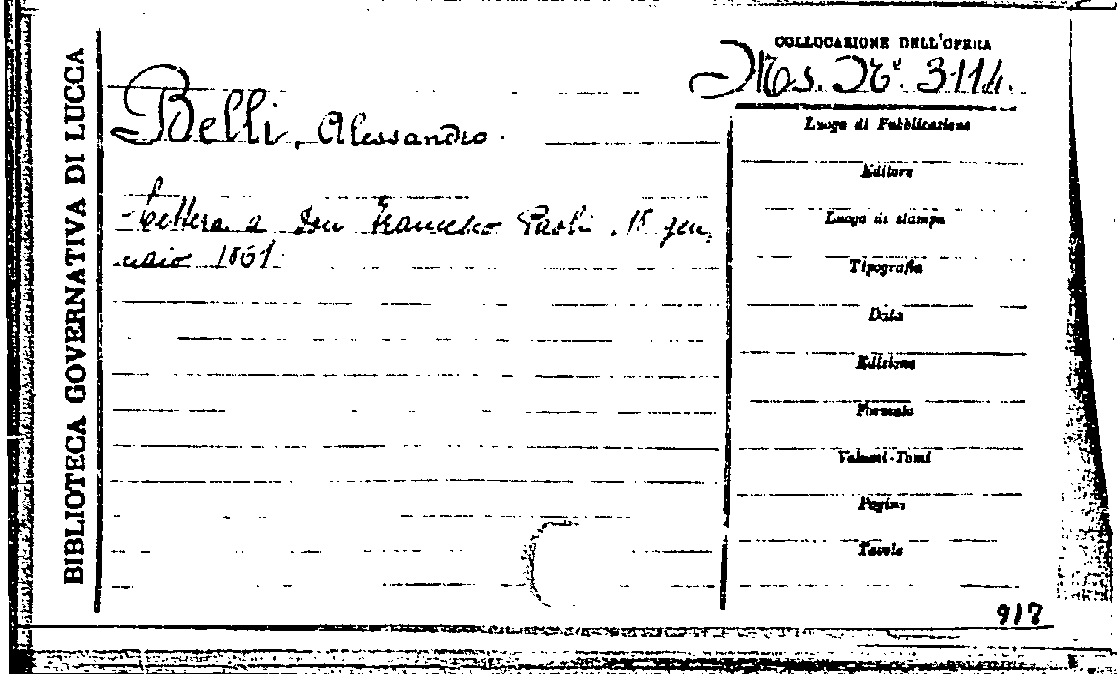 BIBLIOTECA GOVERNATIVA DI LUCCA
Belli, Alessandro.
- Lettera a Don Francesco Paoli. 18 gen,
naio 1861.
COLLOCAZIONE DELL'OPERA
Ms. N°. 3114.
Luogo di Pubblicazione
Editore
Luogo di stampa
Tipografia
Data
Edizione
Formato
Volumi-Tomi
Pagine
Tavole
917